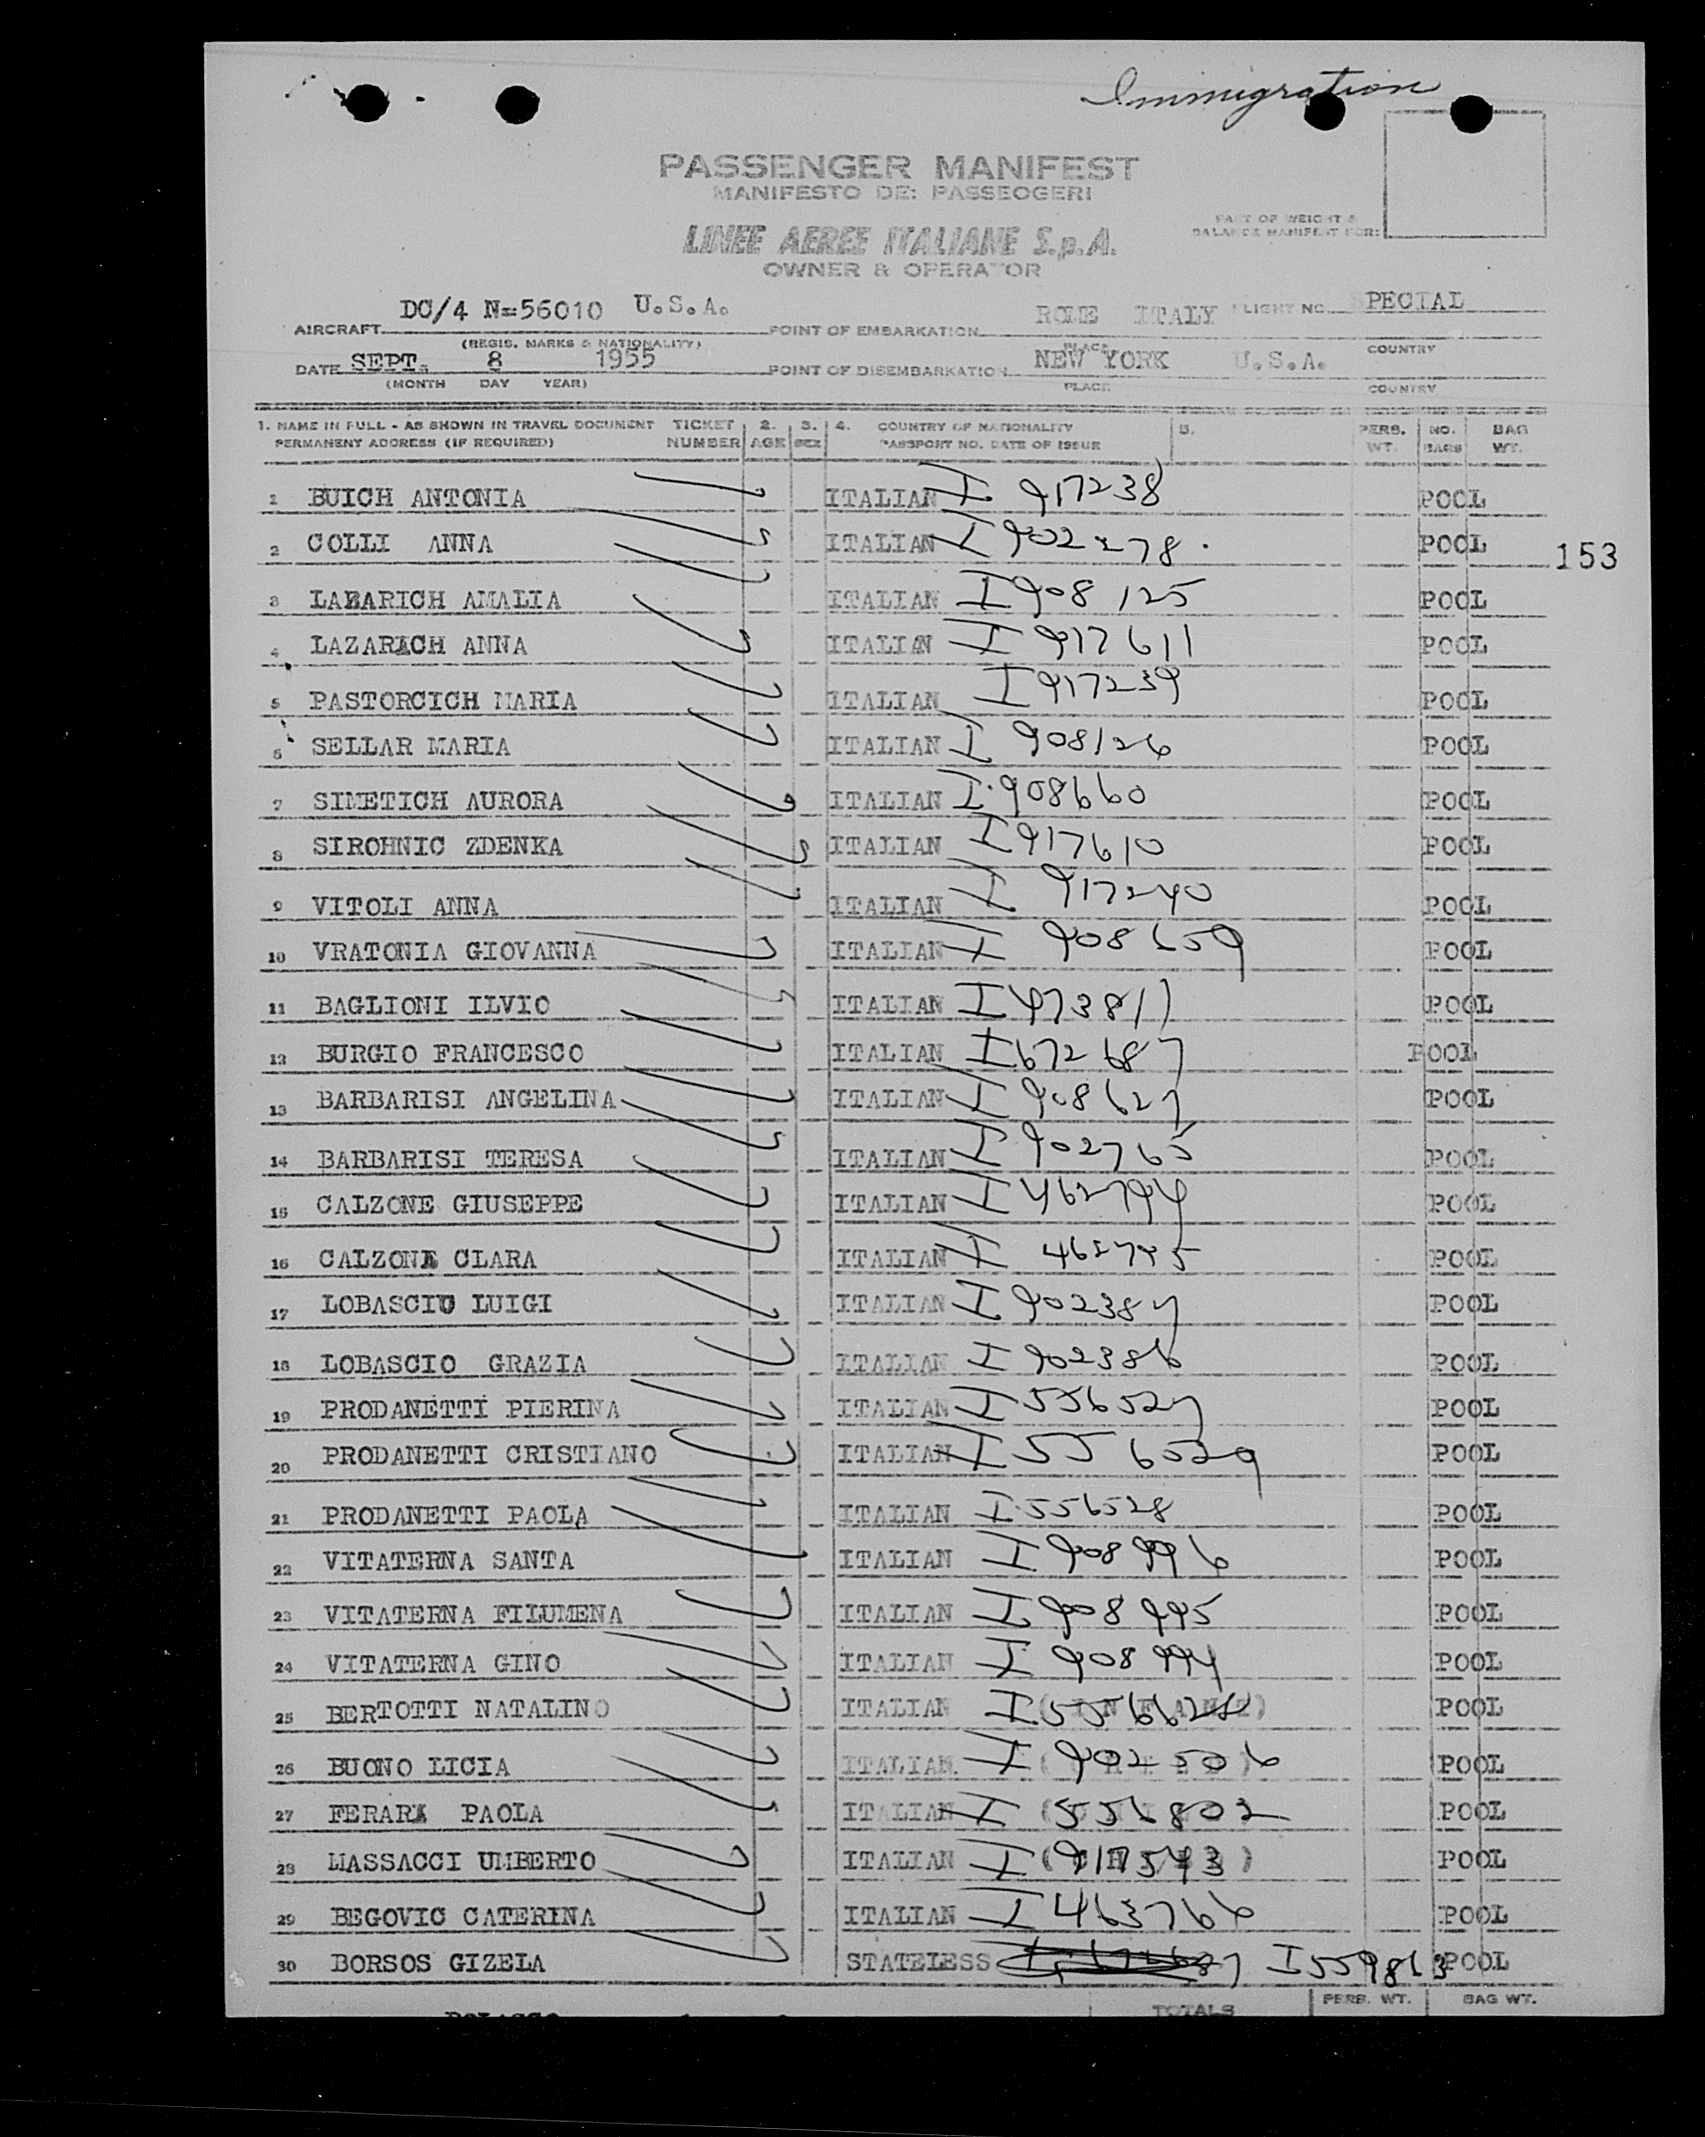 Immigration
PASSENGER MANIFEST
MANIFESTO DE: PASSEOGERI
PART OF WEIGHT &
BALANCE MANIFEST FOR:
LINEE AEREE ITALIANE S.p.A.
OWNER & OPERATOR
AIRCRAFT DC/4 N=56010 U.S.A. POINT OF EMBARKATION ROME ITALY FLIGHT NO. SPECIAL
(REGIS. MARKS & NATIONALITY) PLACE COUNTRY
DATE SEPT. 8 1955 POINT OF DISEMBARKATION NEW YORK U.S.A.
(MONTH DAY YEAR) PLACE COUNTRY
1. NAME IN FULL - AS SHOWN IN TRAVEL DOCUMENT TICKET 2. 3. 4. COUNTRY OF NATIONALITY 5. PERS. NO. BAG
PERMANENT ADDRESS (IF REQUIRED) NUMBER AGE SEX PASSPORT NO. DATE OF ISSUE WT. BAGS WT.
1 BUICH ANTONIA ITALIAN I 917238 POOL
2 COLLI ANNA ITALIAN I 902278. POOL
153
3 LAZARICH AMALIA ITALIAN I 908125 POOL
4 LAZARICH ANNA ITALIAN I 917611 POOL
5 PASTORCICH MARIA ITALIAN I 917239 POOL
6 SELLAR MARIA ITALIAN I 908126 POOL
7 SIMETICH AURORA ITALIAN I.908660 POOL
8 SIROHNIC ZDENKA ITALIAN I 917610 POOL
9 VITOLI ANNA ITALIAN I 917240 POOL
10 VRATONIA GIOVANNA ITALIAN I 908659 POOL
11 BAGLIONI ILVIO ITALIAN I 473811 POOL
12 BURGIO FRANCESCO ITALIAN I 672687 POOL
13 BARBARISI ANGELINA ITALIAN I 908627 POOL
14 BARBARISI TERESA ITALIAN I 902765 POOL
15 CALZONE GIUSEPPE ITALIAN I 462794 POOL
16 CALZONE CLARA ITALIAN I 462795 POOL
17 LOBASCIO LUIGI ITALIAN I 902387 POOL
18 LOBASCIO GRAZIA ITALIAN I 902386 POOL
19 PRODANETTI PIERINA ITALIAN I 556527 POOL
20 PRODANETTI CRISTIANO ITALIAN I 556529 POOL
21 PRODANETTI PAOLA ITALIAN I 556528 POOL
22 VITATERNA SANTA ITALIAN I 908996 POOL
23 VITATERNA FILUMENA ITALIAN I 908995 POOL
24 VITATERNA GINO ITALIAN I 908994 POOL
25 BERTOTTI NATALINO ITALIAN I (INFANT) POOL
26 BUONO LICIA ITALIAN I 902506 POOL
27 FERARI PAOLA ITALIAN I 556802 POOL
28 MASSACCI UMBERTO ITALIAN I 917543 POOL
29 BEGOVIC CATERINA ITALIAN I 463766 POOL
30 BORSOS GIZELA STATELESS I 559863 POOL
TOTALS PERS. WT. BAG WT.